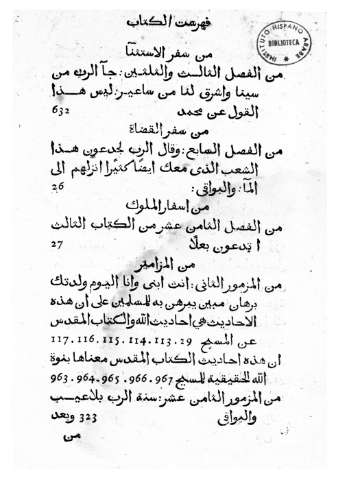 فهرست الكتاب
INSTITUTO HISPANO ARABE
BIBLIOTECA
من سفر الاستثنا
من الفصل الثالث والثلثين: جآ الرب من
سينا واشرق لنا من ساعير: ليس هذا
القول عن محمد 632
من سفر القضاة
من الفصل السابع: وقال الرب لجدعون هذا
الشعب الذى معك ايضا كثيرا انزلهم الى
المآ: والبواقى: 26
من اسفار الملوك
من الفصل الثامن عشر من الكتاب الثالث
ا تدعون بعلا 27
من المزامير
من المزمور الثانى: انت ابنى وانا اليوم ولدتك
برهان مبين يبرهن به للمسلمين على ان هذه
الاحاديث هى احاديث الله والكتاب المقدس
عن المسيح 19 .113 .114 .115 .116 .117
ان هذه احاديث الكتاب المقدس معناها بنوة
الله الحقيقية للمسيح 967 .966 .965 .964 .963
من المزمور الثامن عشر: سنة الرب بلا عيب
والبواقى 323 وبعد
من